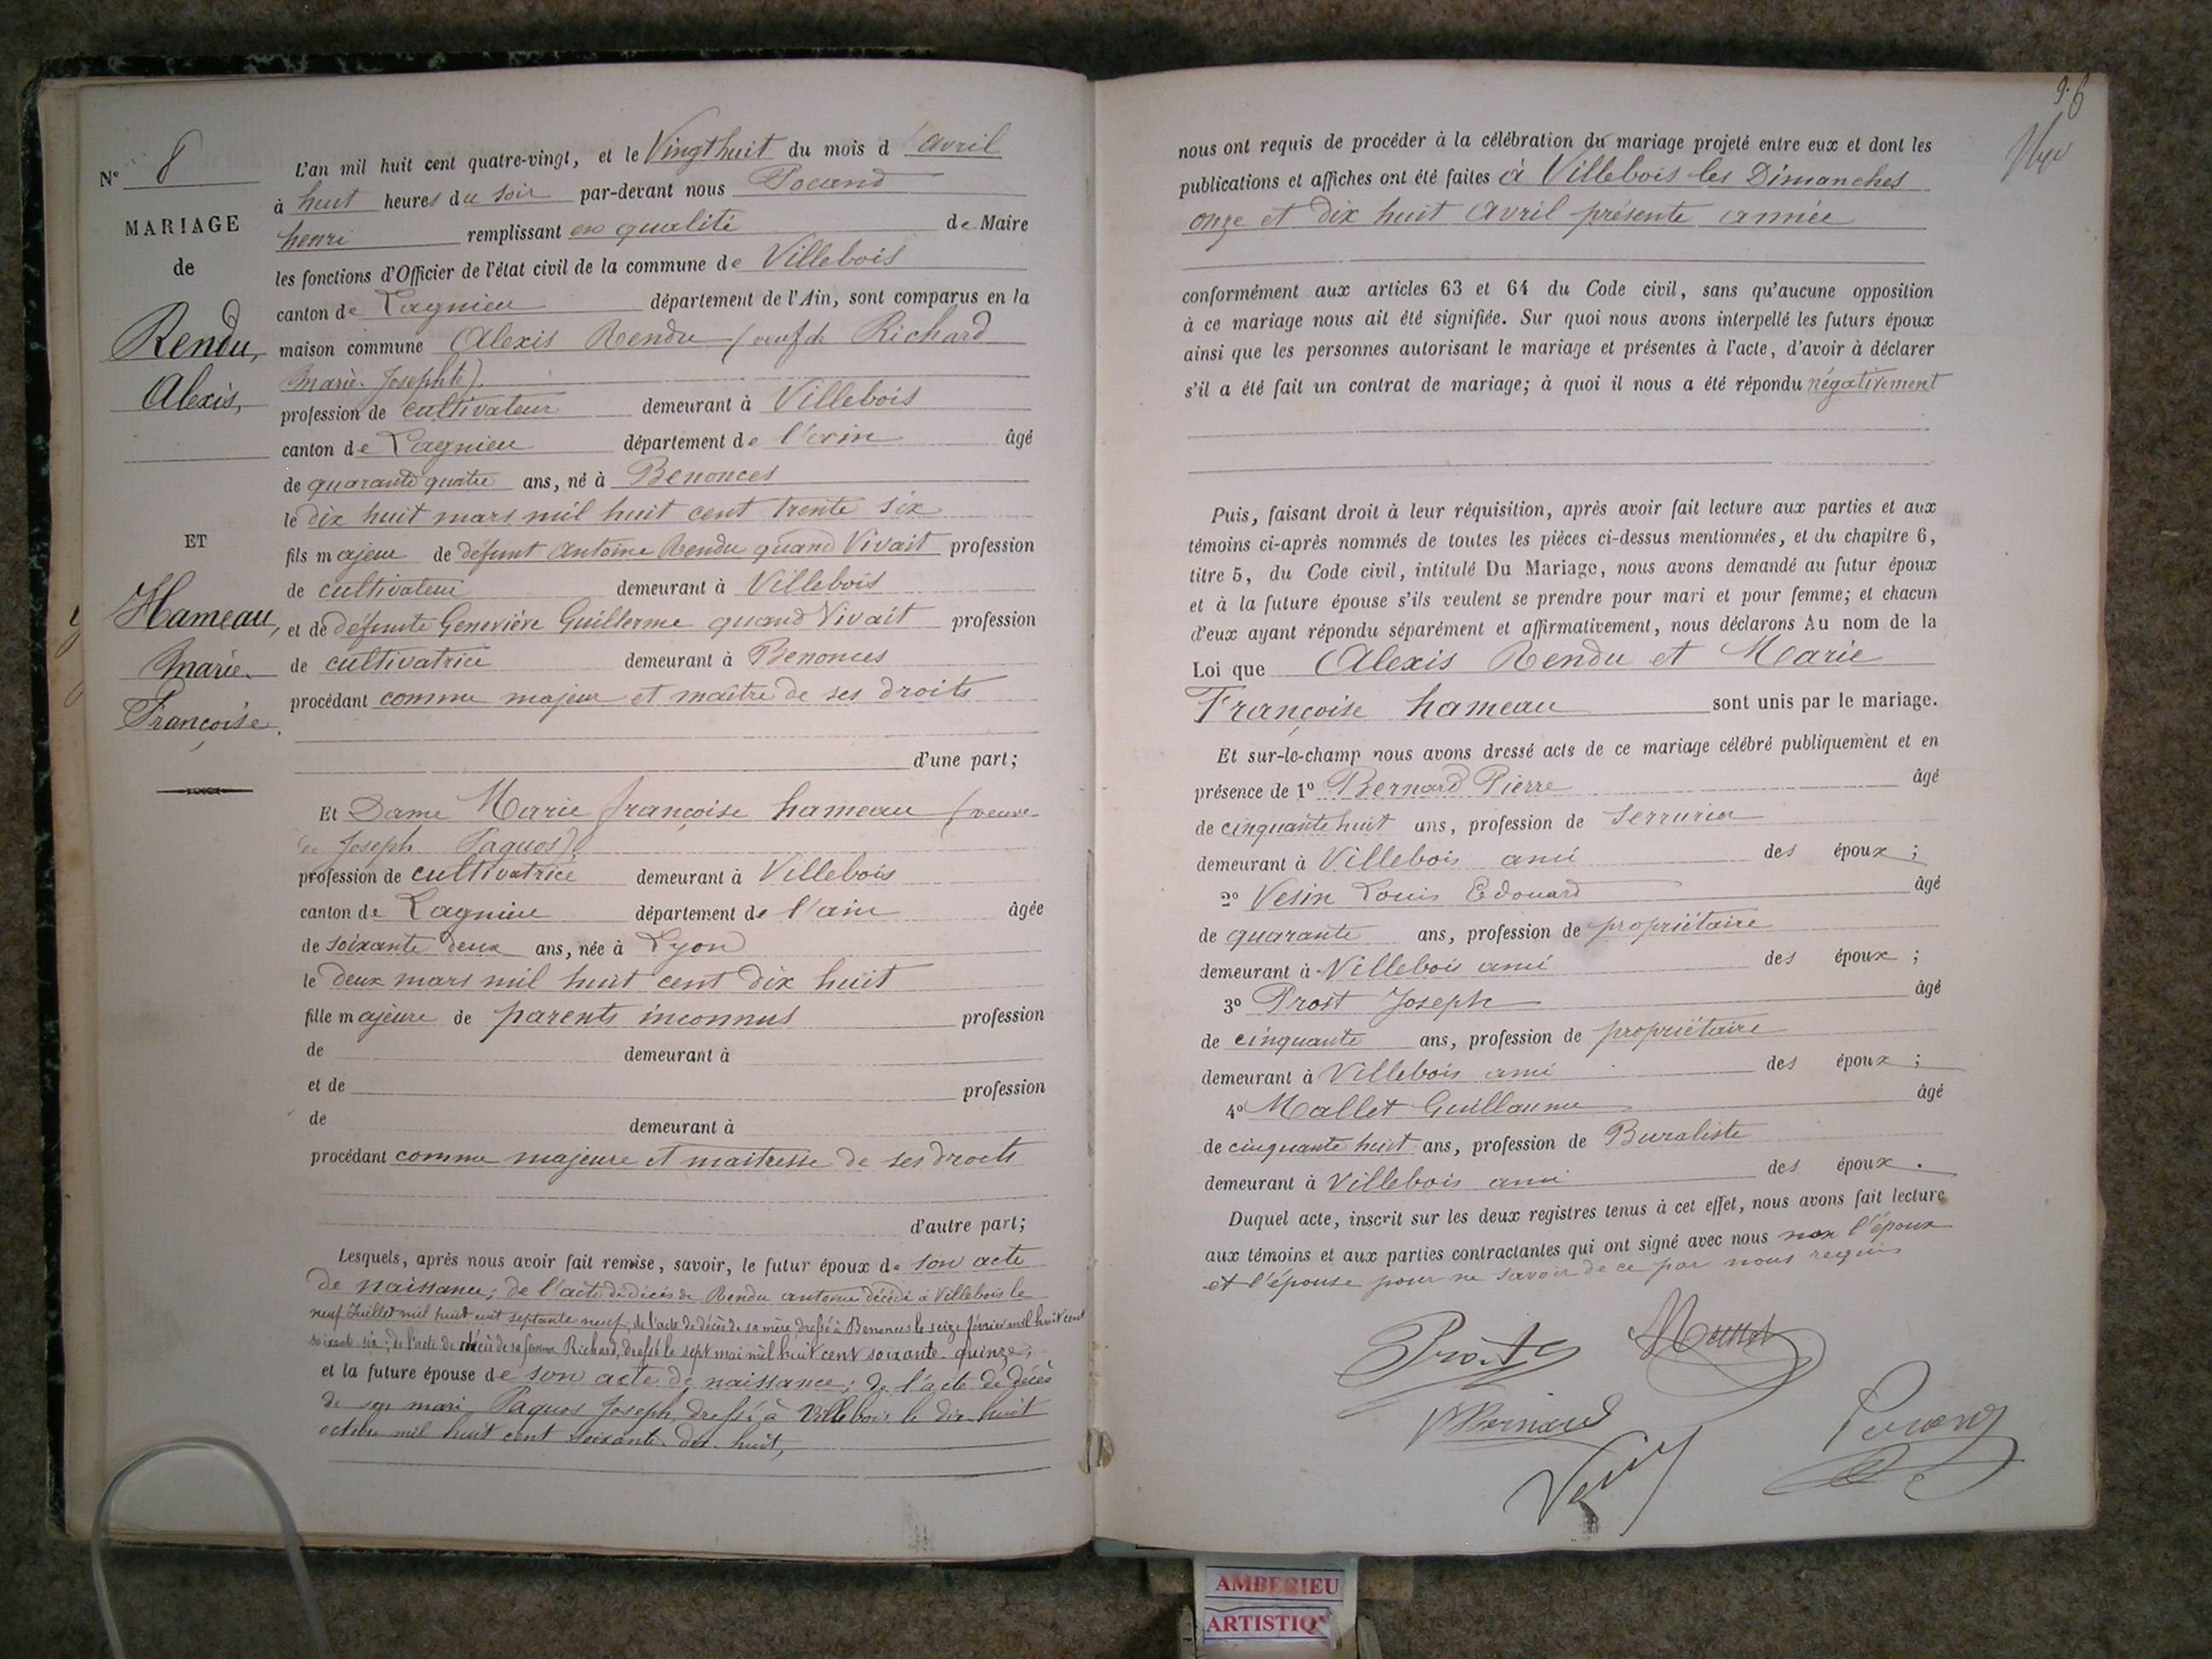 N° 8
MARIAGE
de
Rendu,
Alexis,
ET
Hameau,
Marie
Françoise.
L'an mil huit cent quatre-vingt, et le Vingt huit du mois d'avril
à huit heures du soir par-devant nous Pocand
henri remplissant en qualité de Maire
les fonctions d'Officier de l'état civil de la commune de Villebois
canton de Lagnieu département de l'Ain, sont comparus en la
maison commune Alexis Rendu (veuf de Richard
Marie-Josephte)
profession de cultivateur demeurant à Villebois
canton de Lagnieu département de l'ain âgé
de quarante quatre ans, né à Benonces
le dix huit mars mil huit cent trente six
fils majeur de défunt Antoine Rendu quand Vivait profession
de cultivateur demeurant à Villebois
et de défunte Geneviève Guillerme quand Vivait profession
de cultivatrice demeurant à Benonces
procédant comme majeur et maitre de ses droits
d'une part;
Et Dame Marie françoise hameau (veuve
de Joseph Paquos)
profession de cultivatrice demeurant à Villebois
canton de Lagnieu département de l'ain âgée
de soixante deux ans, née à Lyon
le deux mars mil huit cent dix huit
fille majeure de parents inconnus profession
de demeurant à
et de profession
de demeurant à
procédant comme majeure et maitresse de ses droits
d'autre part;
Lesquels, après nous avoir fait remise, savoir, le futur époux de son acte
de naissance; de l'acte de décès de Rendu antoine décédé à Villebois le
neuf Juillet mil huit cent septante neuf; de l'acte de décès de sa mère, dressé à Benonces le seize février mil huit cent
soixante six; de l'acte de décès de sa femme Richard, dressé le sept mai mil huit cent soixante-quinze;
et la future épouse de son acte de naissance; de l'acte de décès
de son mari Paquos Joseph, dressé à Villebois le dix-huit
octobre mil huit cent soixante-dix-huit,
96
nous ont requis de procéder à la célébration du mariage projeté entre eux et dont les
publications et affiches ont été faites à Villebois les Dimanches
onze et dix huit avril présente année
conformément aux articles 63 et 64 du Code civil, sans qu'aucune opposition
à ce mariage nous ait été signifiée. Sur quoi nous avons interpellé les futurs époux
ainsi que les personnes autorisant le mariage et présentes à l'acte, d'avoir à déclarer
s'il a été fait un contrat de mariage; à quoi il nous a été répondu négativement
Puis, faisant droit à leur réquisition, après avoir fait lecture aux parties et aux
témoins ci-après nommés de toutes les pièces ci-dessus mentionnées, et du chapitre 6,
titre 5, du Code civil, intitulé Du Mariage, nous avons demandé au futur époux
et à la future épouse s'ils veulent se prendre pour mari et pour femme; et chacun
d'eux ayant répondu séparément et affirmativement, nous déclarons Au nom de la
Loi que Alexis Rendu et Marie
Françoise hameau sont unis par le mariage.
Et sur-le-champ nous avons dressé acte de ce mariage célébré publiquement et en
présence de 1° Bernard Pierre âgé
de cinquante huit ans, profession de Serrurier
demeurant à Villebois ami des époux;
2° Vesin Louis Edouard âgé
de quarante ans, profession de propriétaire
demeurant à Villebois ami des époux;
3° Prost Joseph âgé
de cinquante ans, profession de propriétaire
demeurant à Villebois ami des époux;
4° Mallet Guillaume âgé
de cinquante huit ans, profession de Buraliste
demeurant à Villebois ami des époux.
Duquel acte, inscrit sur les deux registres tenus à cet effet, nous avons fait lecture
aux témoins et aux parties contractantes qui ont signé avec nous non l'époux
et l'épouse pour ne savoir de ce par nous requis
Prost
Mallet
P Bernard
Vesin
Pocand
AMBERIEU
ARTISTIQ